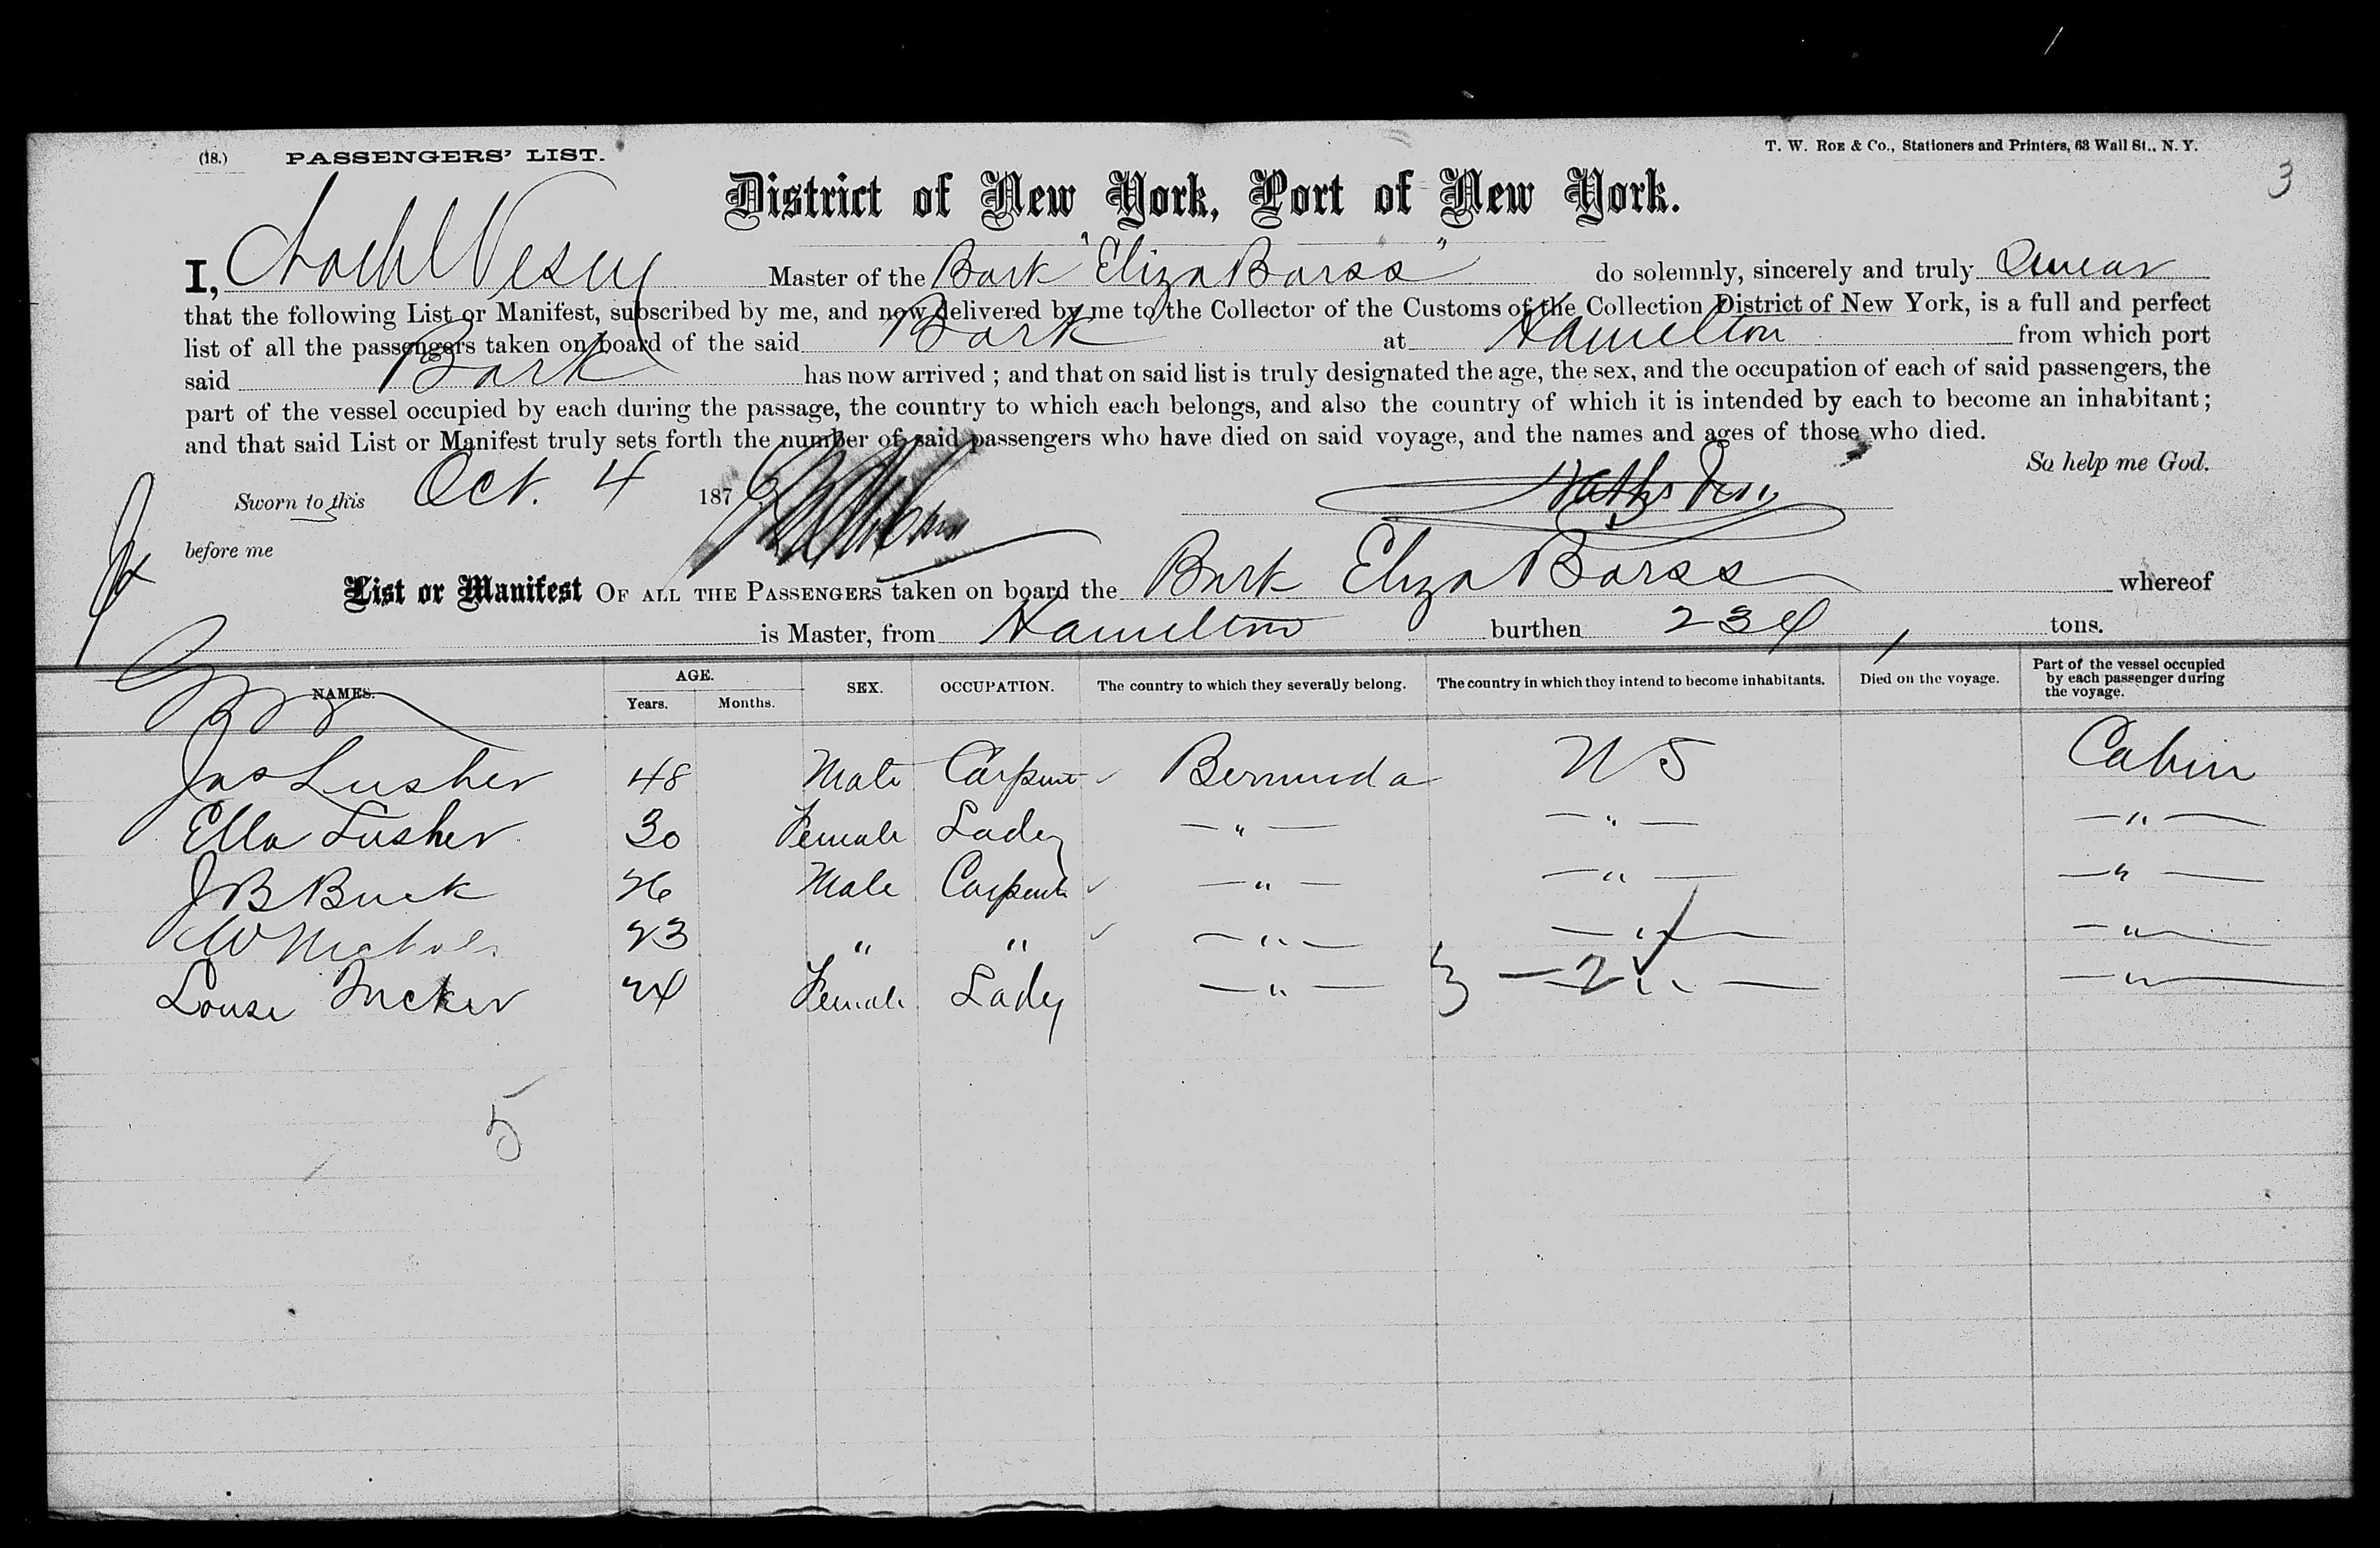 (18.) PASSENGERS' LIST. T. W. ROE & CO., Stationers and Printers, 63 Wall St., N. Y.
3
District of New York, Port of New York.
I, Vesey Master of the Bark "Eliza Barss" do solemnly, sincerely and truly Swear
that the following List or Manifest, subscribed by me, and now delivered by me to the Collector of the Customs of the Collection District of New York, is a full and perfect
list of all the passengers taken on board of the said Bark at Hamilton from which port
said Bark has now arrived ; and that on said list is truly designated the age, the sex, and the occupation of each of said passengers, the
part of the vessel occupied by each during the passage, the country to which each belongs, and also the country of which it is intended by each to become an inhabitant ;
and that said List or Manifest truly sets forth the number of said passengers who have died on said voyage, and the names and ages of those who died.
So help me God.
Sworn to this Oct. 4 1876
before me
List or Manifest OF ALL THE PASSENGERS taken on board the Bark Eliza Barss whereof
is Master, from Hamilton burthen 234 tons.
NAMES. AGE. Years. Months. SEX. OCCUPATION. The country to which they severally belong. The country in which they intend to become inhabitants. Died on the voyage. Part of the vessel occupied by each passenger during the voyage.
Jas Lusher 48 Male Carpent Bermuda U S Cabin
Ella Lusher 30 Female Lady — " — — " — — " —
J B Buck 26 Male Carpent — " — — " — — " —
W Nichols 23 " " — " — — " — — " —
Louse Tucker 24 Female Lady — " — 3 — 2 " — — " —
5